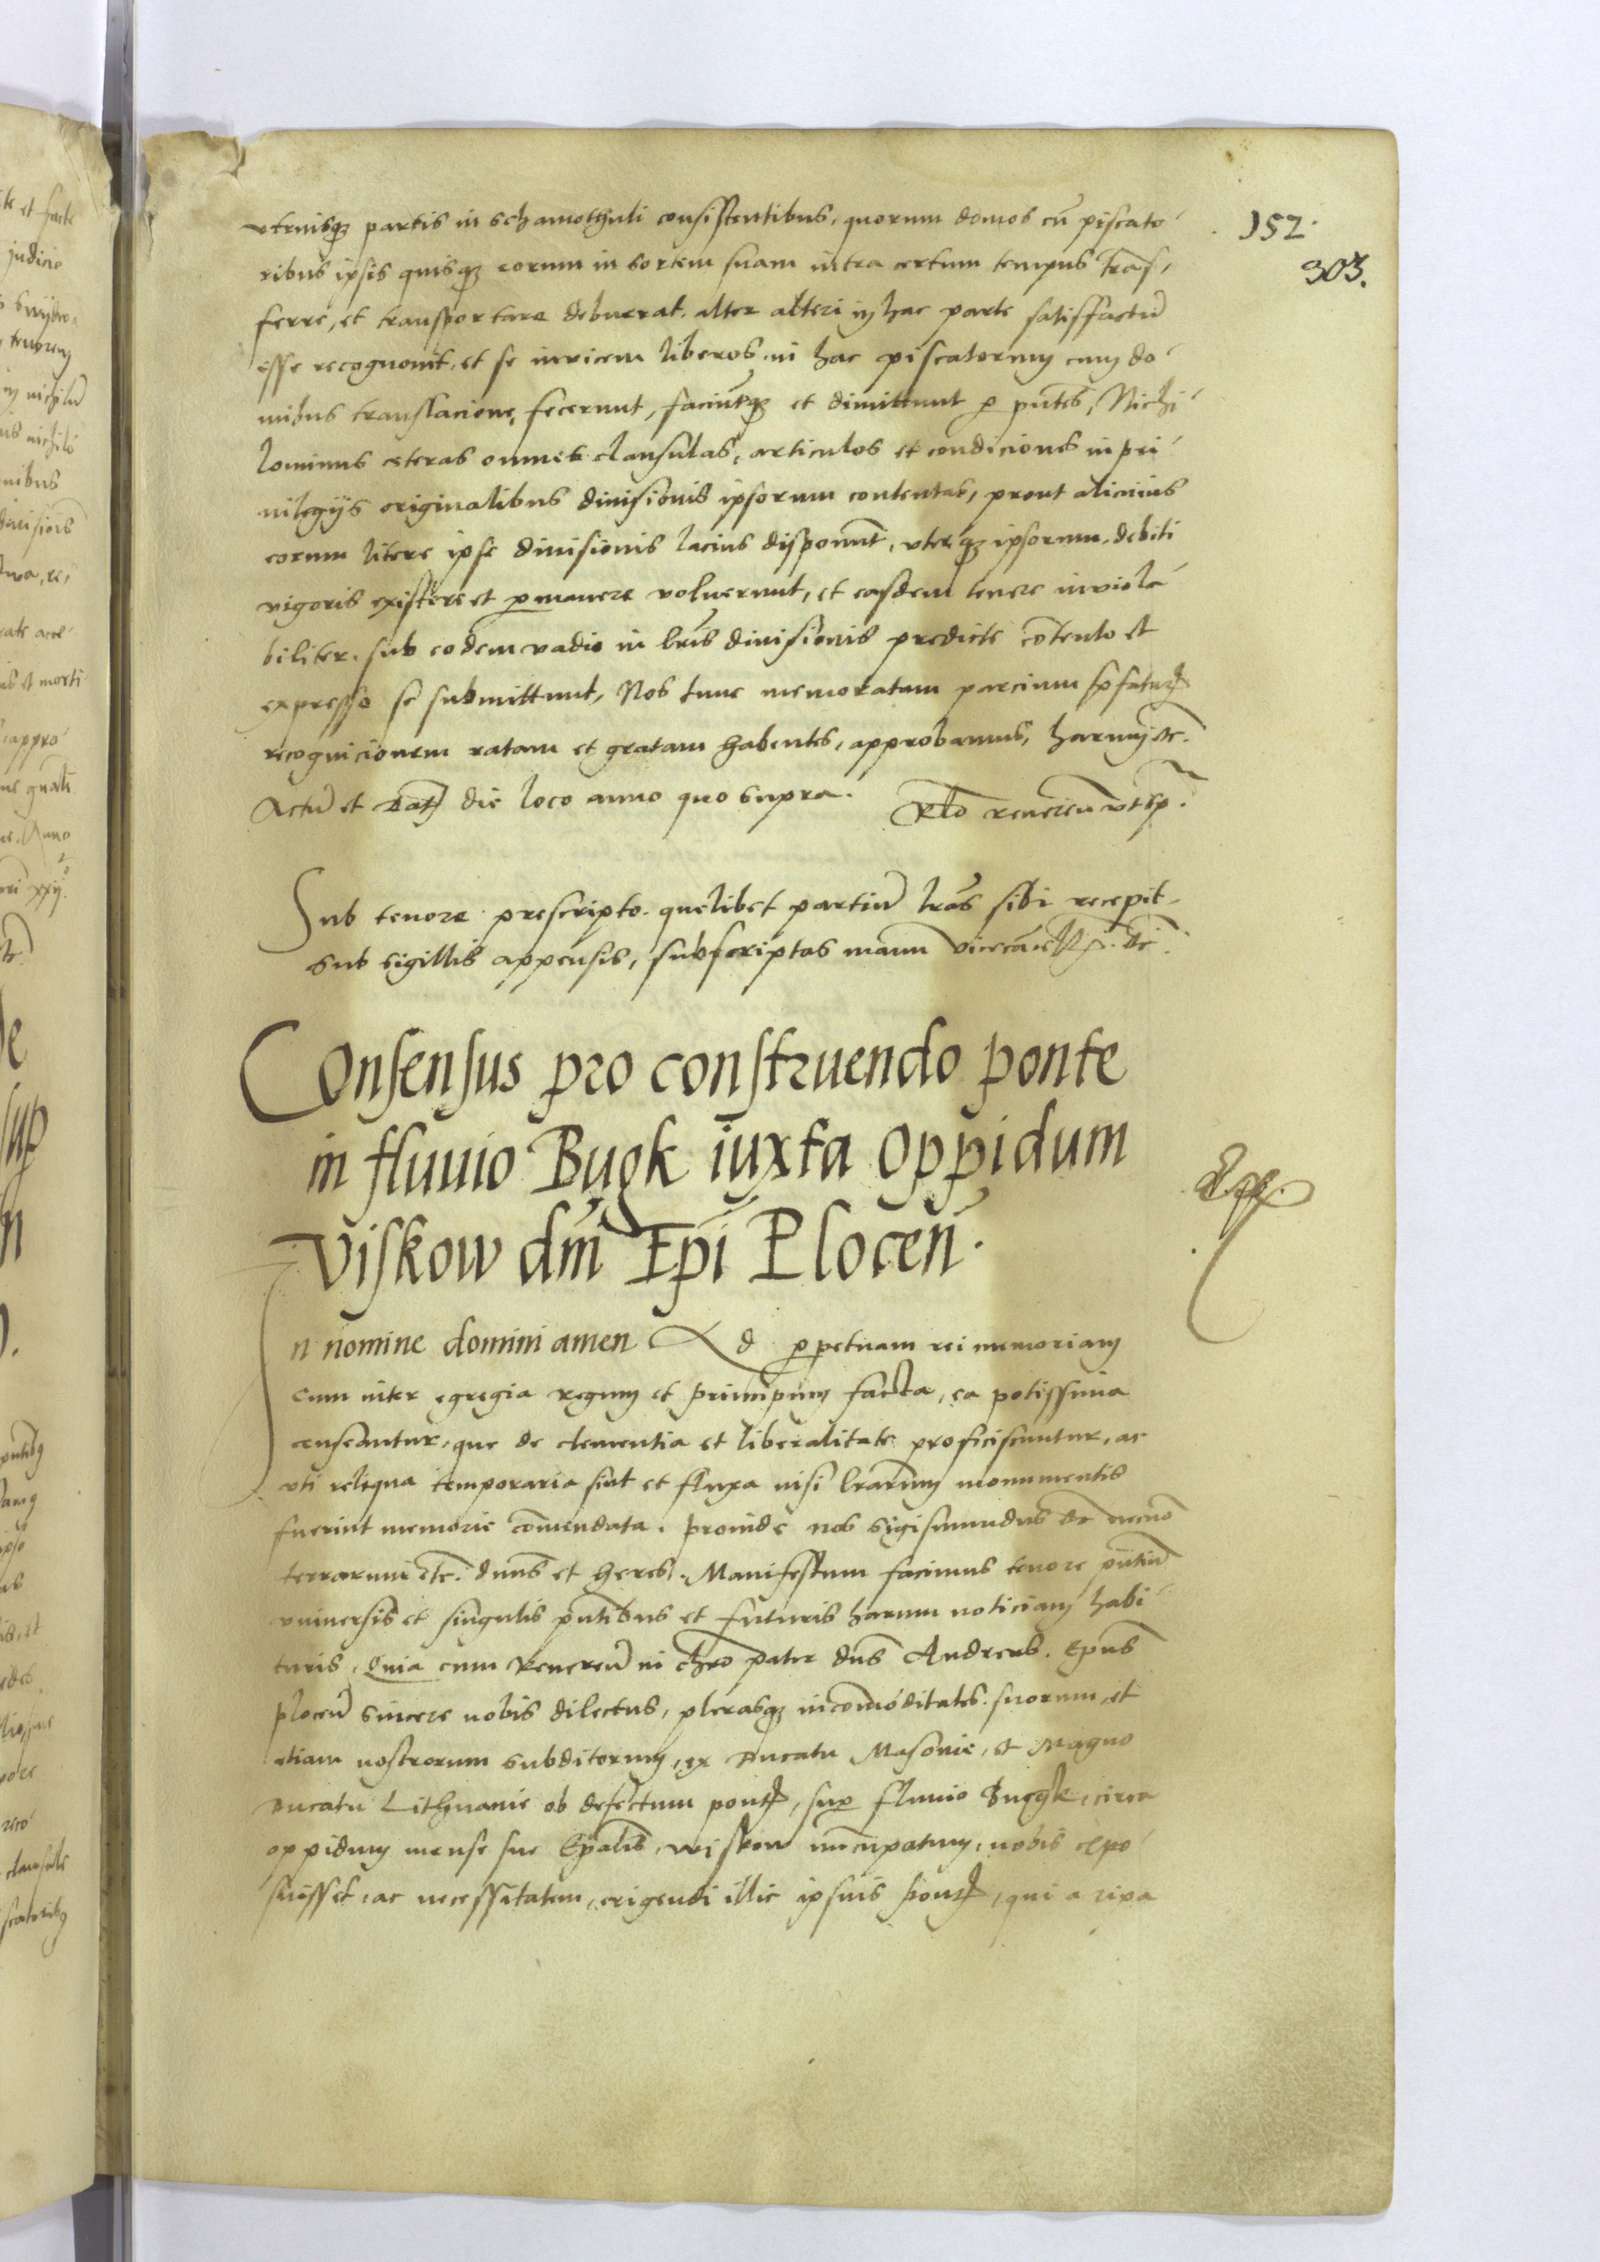 152.
303.
vtriusq; partis in Schamothuli consistentibus, quorum domos cū piscato
ribus ipsis quisq; eorum in sortem suam intra certum tempus trāsf,
ferre, et transportare debuerat, alter alteri in hac parte satisfactū
esse recognouit, et se inuicem liberos in hac piscatorum cum do
mibus translacione, fecerunt, faciuntq; et dimittunt p pn̄tes, Nichi
lominus ceteras omnes clausulas, articulos et condiciones in pri
uilegijs originalibus diuisionis ipsorum contentas, prout alicuius
eorum litere ipse diuisionis lacius disponunt, vterq; ipsorum debiti
vigoris existere et pmanere voluerunt, et easdem tenere inviola
biliter sub eodem vadio in lr̄is diuisionis predicte contento et
expresso se submittunt, Nos tunc memoratam parcium
recognicionem ratam et gratam habentes, approbamus, harum etc.
Actū et Dat die loco anno quo supra. Rlō reueren vt sp.
Sub tenore prescripto quelibet partiū lr̄as sibi recepit
sub sigillis appensis, subscriptas manu
Consensus pro construendo ponte
in fluuio Bugk iuxta oppidum
Viskow dn̄i Epi Plocen̄.
In nomine domini amen Ad ppetuam rei memoriam
cum inter egregia regum et principum facta, ea potissima
censeantur, que de clementia et liberalitate proficiscuntur, ac
vti reliqua temporaria sint et fluxa nisi lr̄arum monumentis
fuerint memorie com̄endata. Proinde nos Sigismundus etc necnō
terrarum etc. dn̄us et heres. Manifestum facimus tenore pn̄tiū
vniuersis et singulis pn̄tibus et futuris harum noticiam habi
turis, Quia cum Reuerēn̄ in chr̄o pater dn̄s Andreas Epūs
plocen̄ sincere nobis dilectus, plerasq; incom̄oditates suorum, et
etiam nostrorum subditorum, ex Ducatu Masouie, et Magno
Ducatu Lithuanie ob defectum pontis, sup fluuio Bugk, circa
oppidum mense sue Ep̄alis, Wiskow nūcupatum, nobis expo
suisset, ac necessitatem, erigendi illic ipsius pontis, qui a ripa